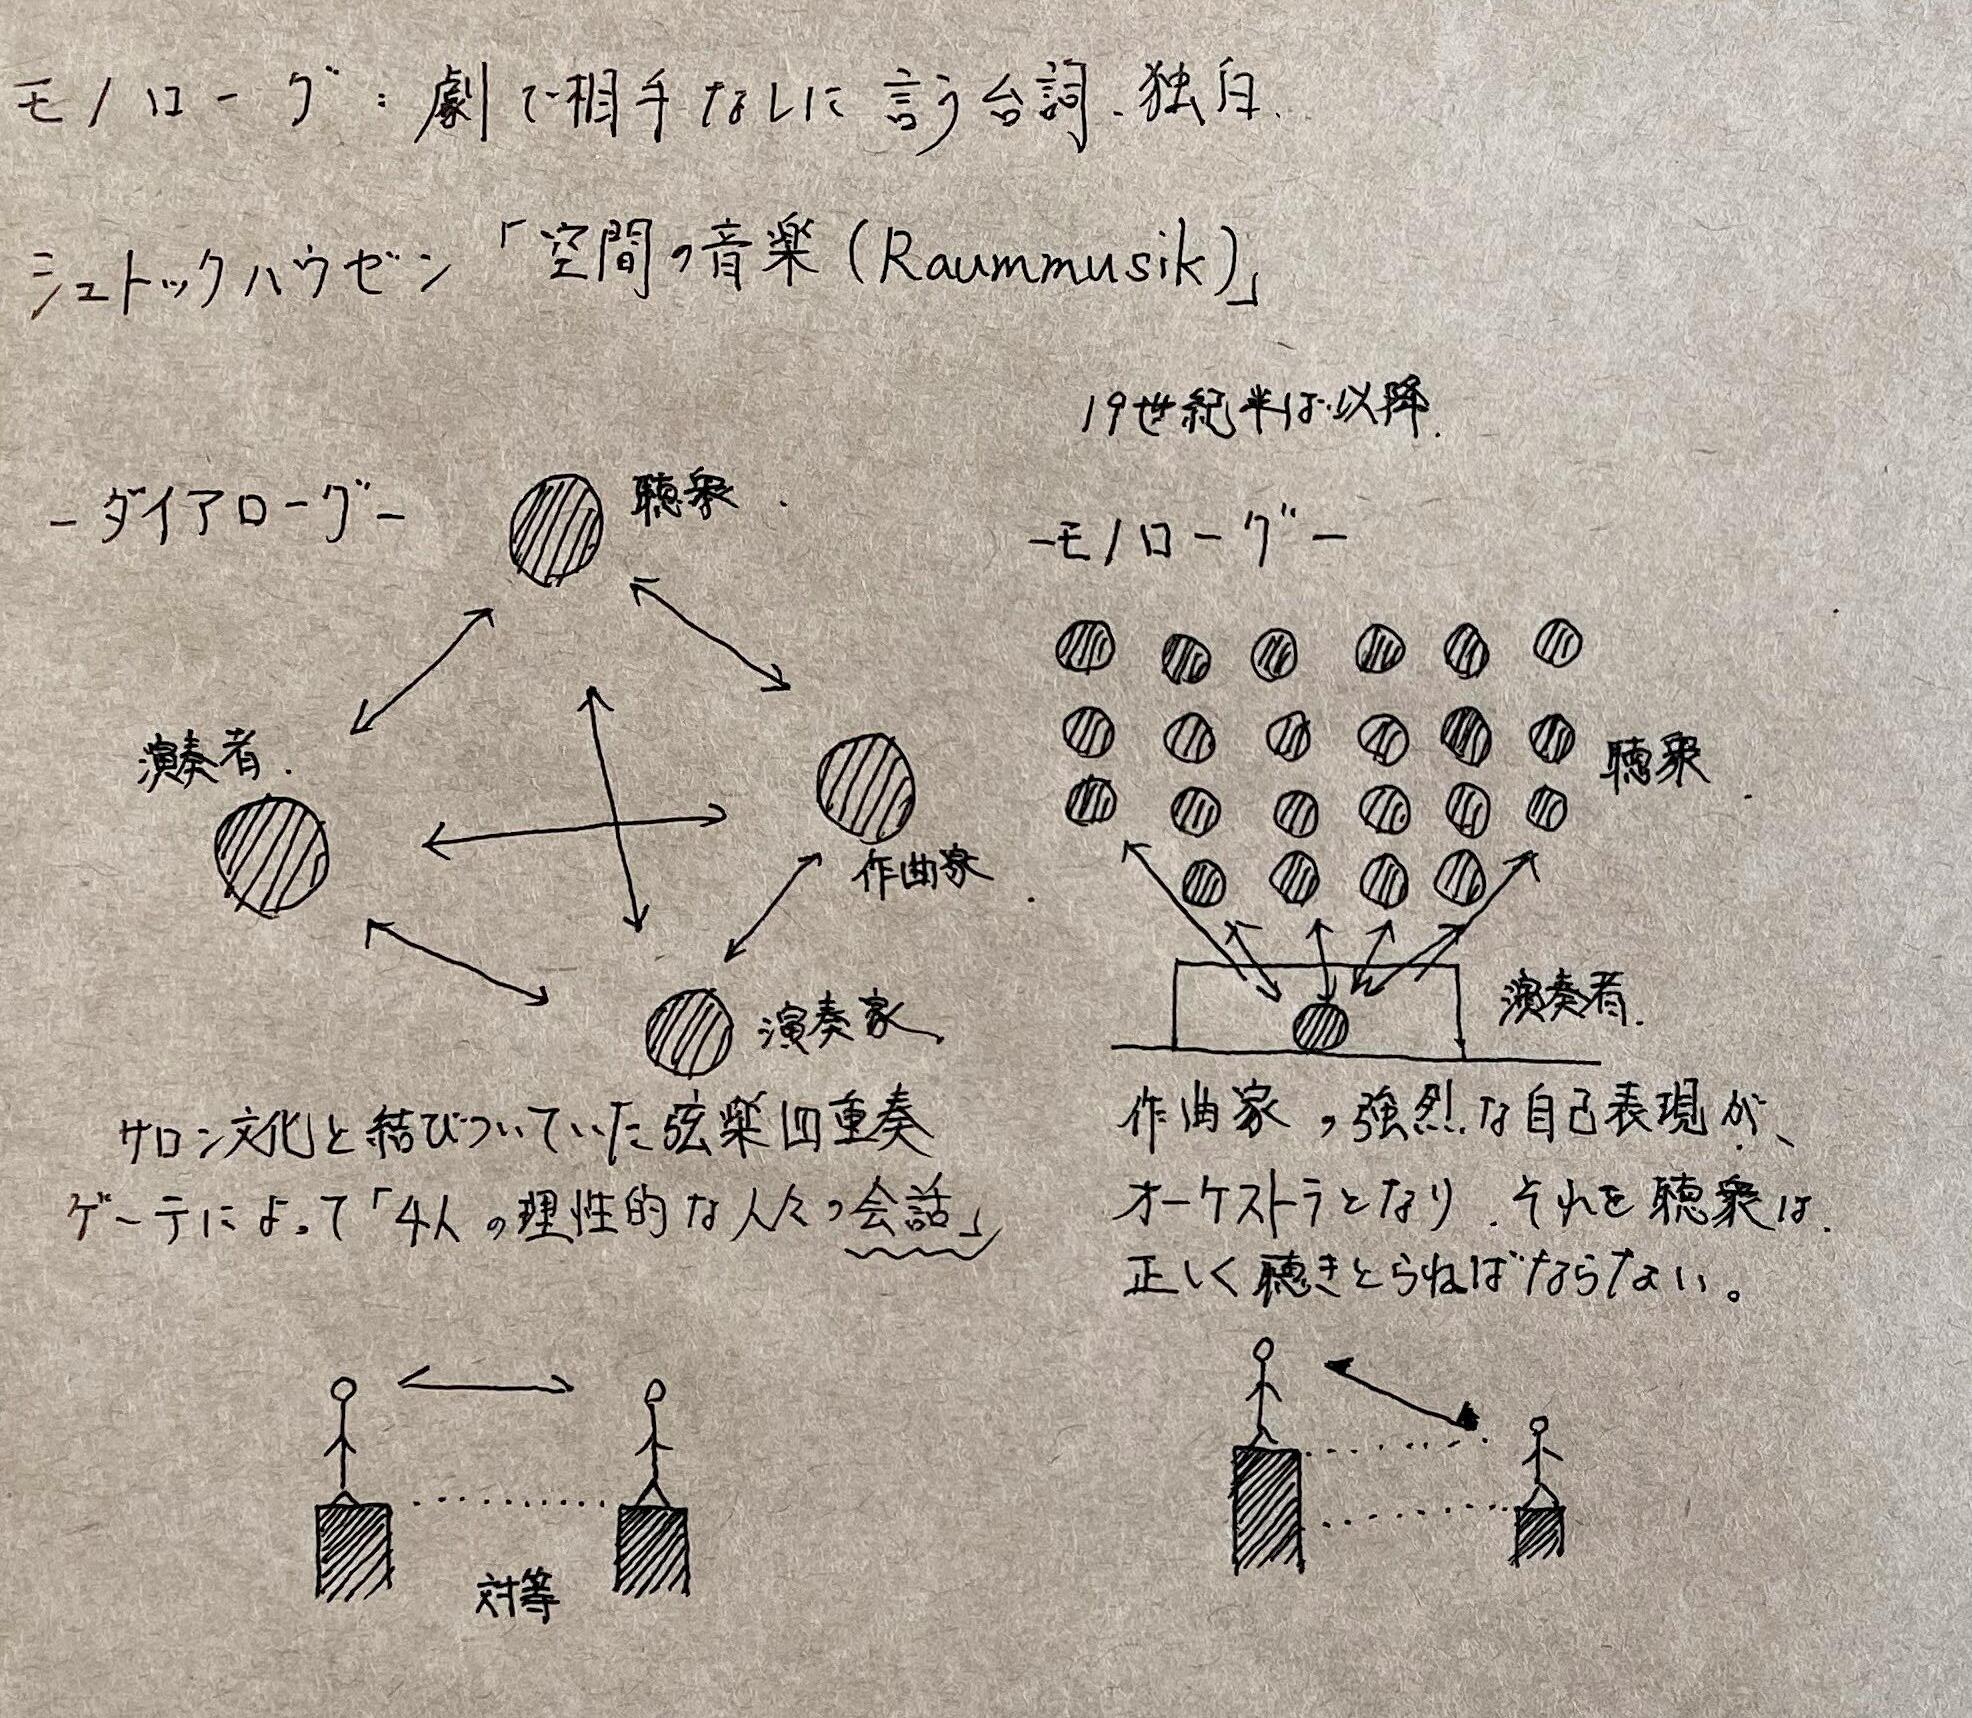 モノローグ:劇で相手なしに言う台詞、独白.
シュトックハウゼン「空間の音楽(Raummusik)」
19世紀半ば以降.
-ダイアローグ-
聴衆
演奏者
作曲家
演奏家
サロン文化と結びついていた弦楽四重奏
ゲーテによって「4人の理性的な人々の会話」
対等
-モノローグ-
聴衆
演奏者.
作曲家の強烈な自己表現が、
オーケストラとなり、それを聴衆は
正しく聴きとらねばならない。